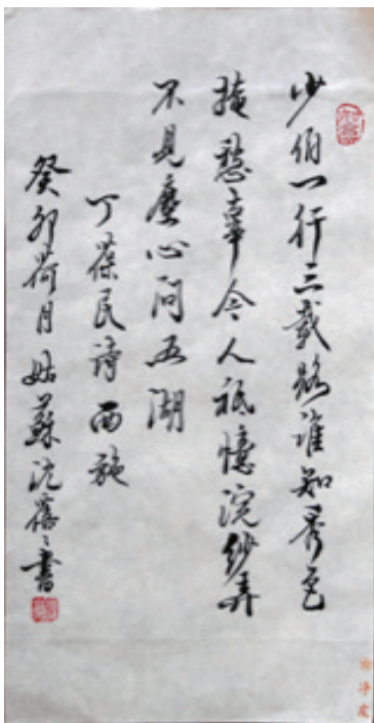 少伯一行三載路誰知秀色
掩愁辜令人祇憶浣紗弄
不見塵心问五湖
丁葆民詩西施
癸卯荷月姑蘇沈書